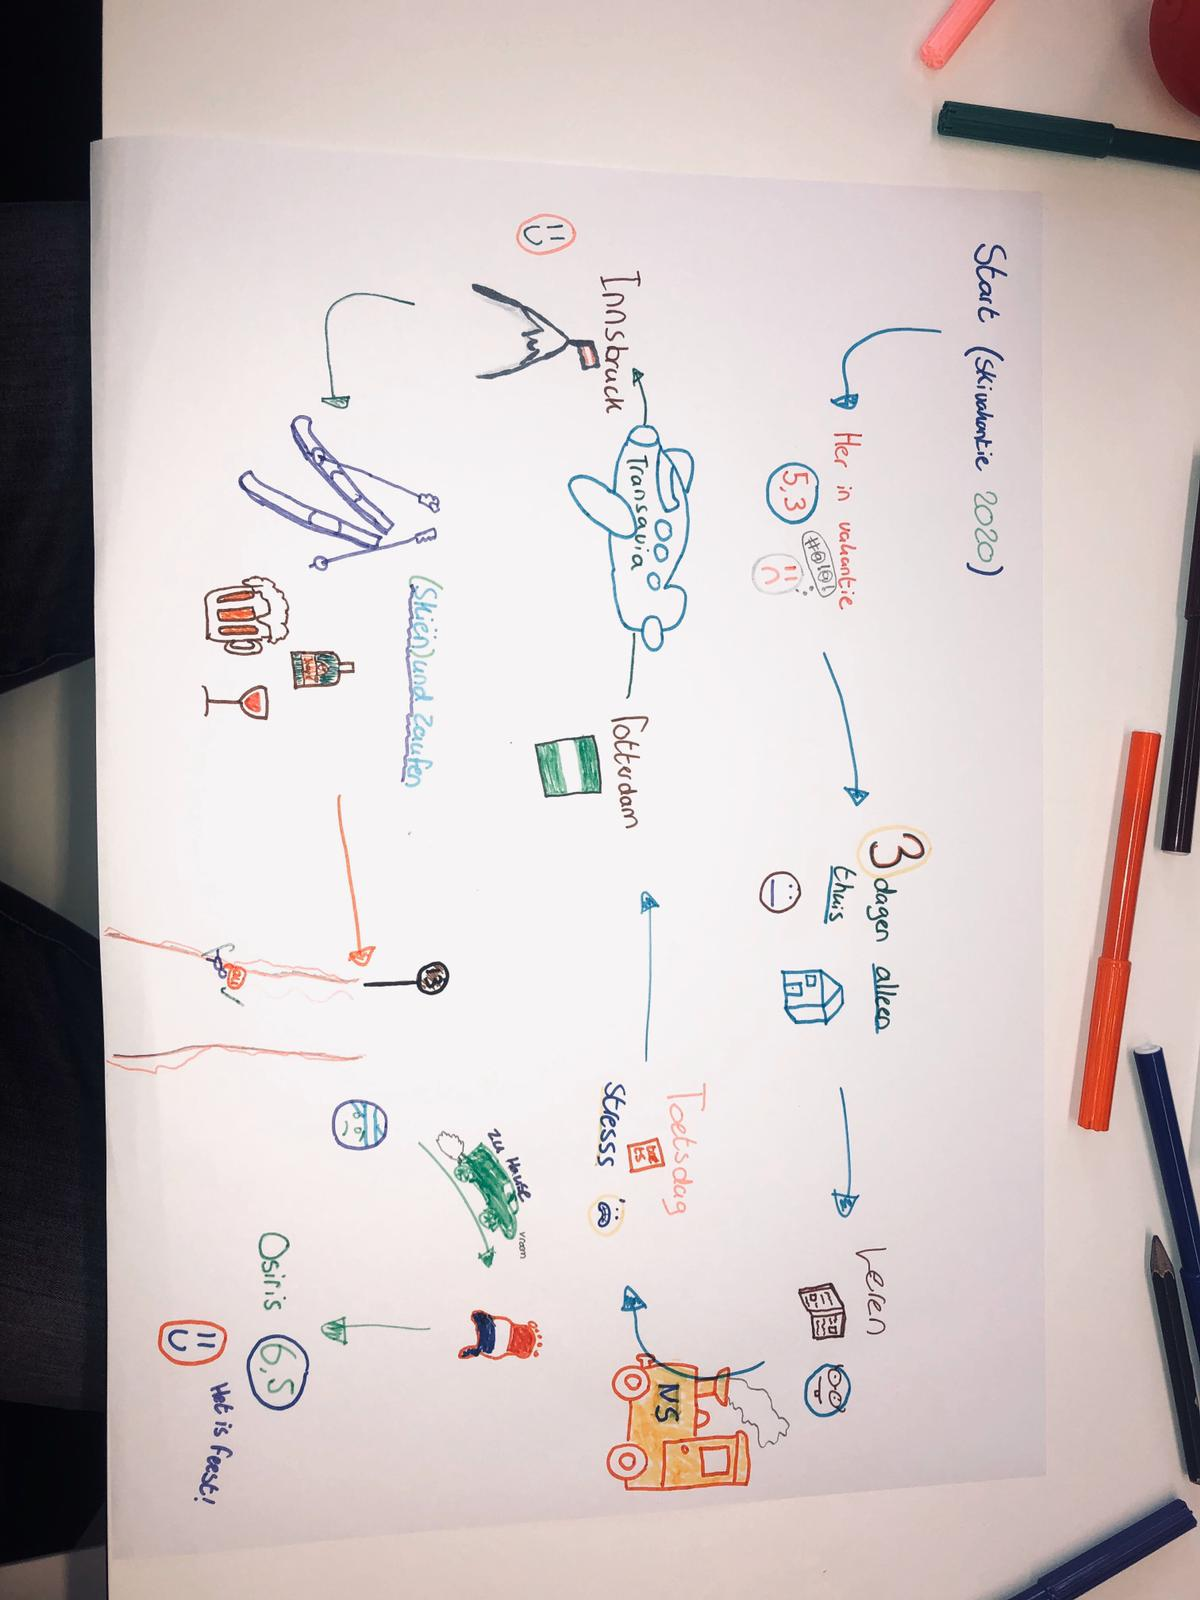 Start (skivakantie 2020)
Her in vakantie
5,3
#@!@!
3 dagen alleen
thuis
Leren
NS
Toetsdag
toe
ts
Stresss
Rotterdam
Transavia
Innsbruck
(Skiën) und Zaufen
13
au
zu Hause
vroom
Osiris 6,5
Het is feest!